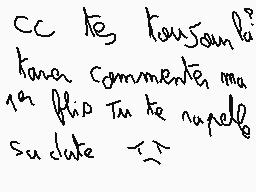 cc tes toujour là?
tavai commenter ma
1er flip Tu te rapelle
sa date